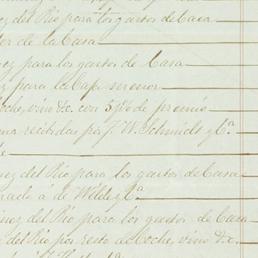 del Rio para los gastos de Casa
de la Casa
para los gastos de Casa
para la Caja menor
Coche, vino &c. con 5 p% de premio
recibidas por J. W. Schmidt y Ca.
del Rio para los gastos de Casa
á de Wilde y Ca.
del Rio para los gastos de Casa
del Rio por resto de Coche, vino &c.